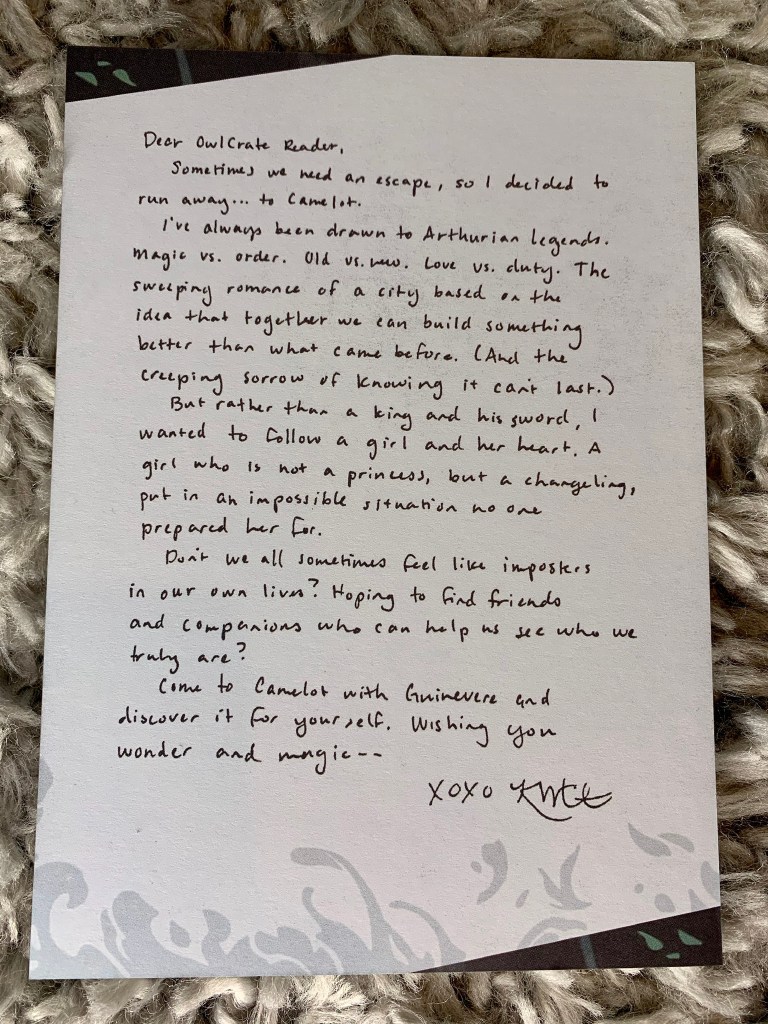 Dear OwlCrate Reader,
Sometimes we need an escape, so I decided to
run away... to Camelot.
I've always been drawn to Arthurian legends.
Magic vs. order. Old vs. new. Love vs. duty. The
sweeping romance of a city based on the
idea that together we can build something
better than what came before. (And the
creeping sorrow of knowing it can't last.)
But rather than a king and his sword, I
wanted to follow a girl and her heart. A
girl who is not a princess, but a changeling,
put in an impossible situation no one
prepared her for.
Don't we all sometimes feel like imposters
in our own lives? Hoping to find friends
and companions who can help us see who we
truly are?
Come to Camelot with Guinevere and
discover it for yourself. Wishing you
wonder and magic--
XOXO